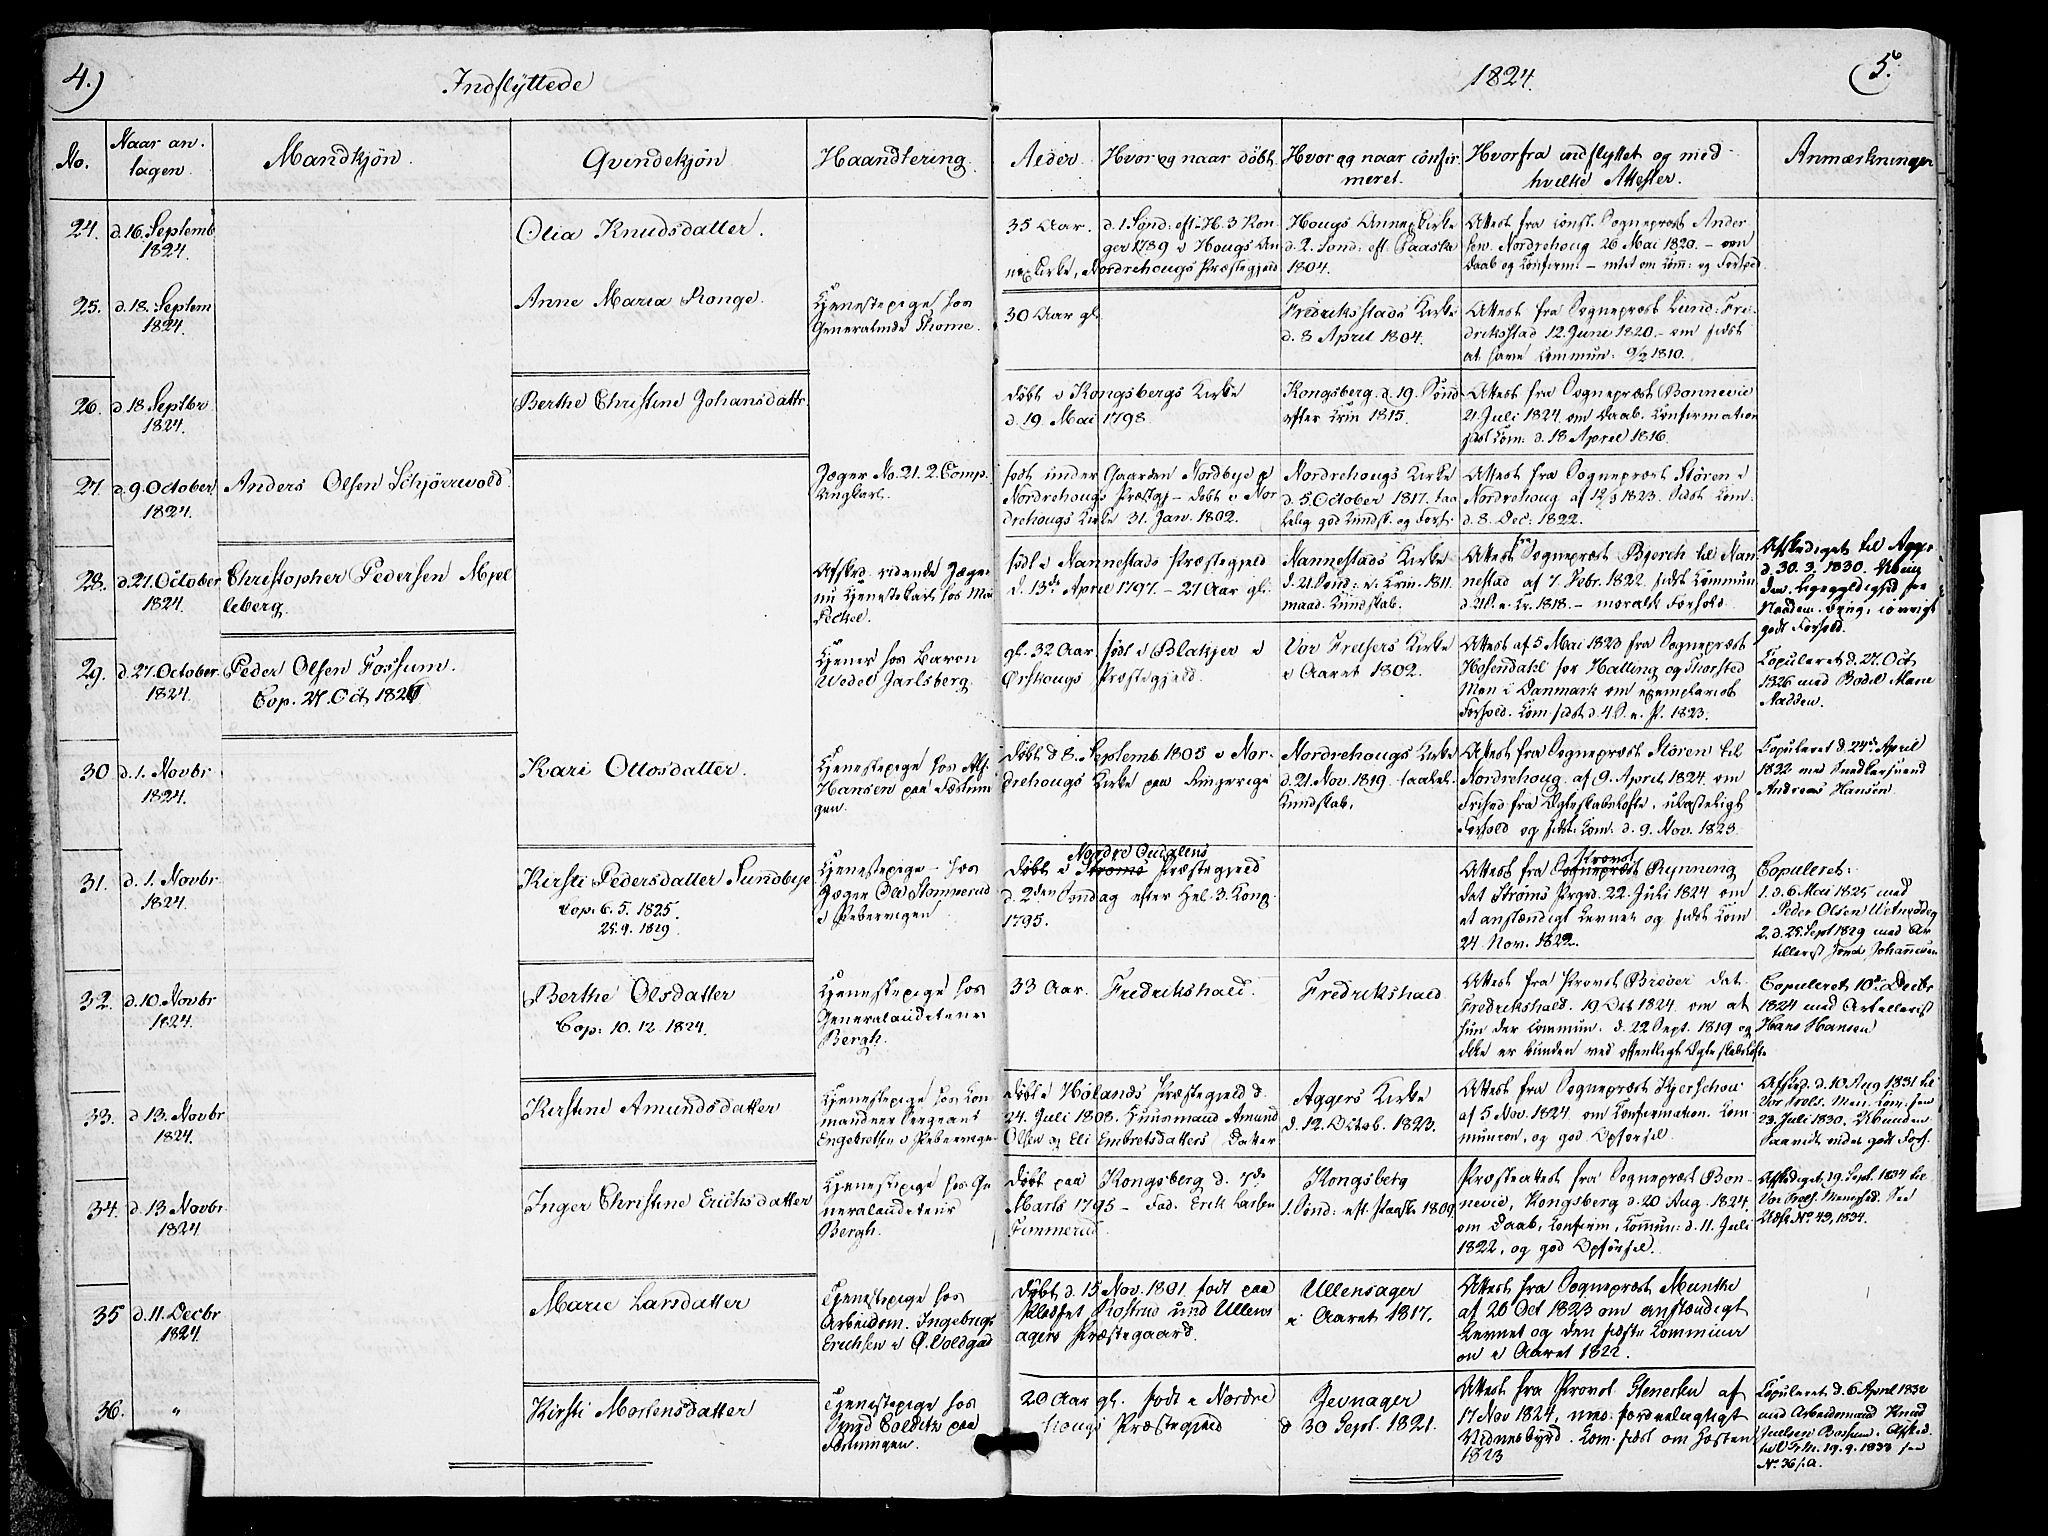 4.)
Indflyttede
1824.
(5.
No.
Naar an-
tagen.
Mandkjøn.
Qvindekjøn.
Haandtering.
Alder
Hvor og naar døbt.
Hvor og naar confir
meret.
Hvorfra indflyttet og med
hvilke Attester.
Anmærkninger
24.
d. 16. Septemb
1824.
Olia Knudsdatter.
35 Aar.
d. 1 Sønd: eft. H. 3 Kon-
ger 1789 i Hougs An
nexkirke, Nordrehougs Præstegjeld
Hougs Annexkirke
d. 2. Sønd: eft. Paaske
1804.
Attest fra const. Sognepræst Ander
sen. Nordrehoug 26 Mai 1820. - om
Daab og Confirm: - intet om Com: og Forhold.
25.
d. 18. Septem
1824.
Anne Maria Ronge.
Tjenestepige hos
Generalinde Thome.
30 Aar gl.
Fredriksstads Kirke
d. 8 April 1804.
Attest fra Sognepræst Lund: Fre-
driksstad 12. Juni 1820. - om sidst
at have Commun: 9/2 1810.
26.
d. 18 Septbr
1824.
Berthe Christine Johansdattr.
Døbt i Kongsbergs Kirke
d. 19. Mai 1798.
Kongsberg. d. 19. Sønd
efter Trin 1815.
Attest fra Sognepræst Bonnevie
21. Juli 1824 om Daab. Confirmation
sidst Com: d. 18 April 1816.
27.
d. 9. October
1824.
Anders Olsen Schjørrvold.
Jæger No. 21. 2. Comp.
Ungkarl.
født under Gaarden Nordbye i
Nordrehougs Præstgj - døbt i Nor
drehougs Kirke 31. Jan. 1802.
Nordrehougs Kirke
d. 5 October 1817. taa
lelig god Kundsk. og Forh.
Attest fra Sognepræst Stören i
Nordrehoug af 12/3 1823. Sidst Com.
d. 8. Dec: 1822.
28.
d. 27. October
1824.
Christopher Pedersen Mjel
leberg.
Afsked. ridende Jæger
nu Tjenestekarl hos
Peckel.
født i Nannestads Præstegjeld
d. 13de April 1797. - 27 Aar gl.
Nannestads Kirke
d. 21. Sønd: e. Trin. 1811.
maad. Kundskab.
Attest fra Sognepræst Bjerch til Nan
nestad af 7. Febr. 1822. sidst Commun
d. 21 S. e. Tr. 1818. - moralsk Forhold.
Afskediget til Agger
d. 30. 3. 1830.
godt Forhold.
29.
d. 27. October
1824.
Peder Olsen Fossum.
Cop. 27. Oct 1826
Tjener hos Baron
Wedel Jarlsberg.
gl. 32 Aar født i Blakjer i
Ørskougs Præstegjeld.
Vor Frelsers Kirke
i Aaret 1802.
Attest af 5 Mai 1823 fra Sognepræst
Hosendahl for Halling og Thorsted
Men i Danmark om exemplarisk
Forhold. Com. sidst d. 4. S. e. P. 1823.
Copuleret d. 27. Oct
1826 med Bodil Marie
Madsen.
30
d. 1. Novbr
1824.
Kari Ottosdatter.
Tjenestepige hos
Hansen paa Fæstnin
gen.
Døbt d. 8. Septemb. 1805 i Nor-
drehougs Kirke paa Ringerige
Nordrehougs Kirke
d. 21. Nov. 1819. taalel.
Kundskab.
Attest fra Sognepræst Stören til
Nordrehoug. af 9. April. 1824. om
Frihed fra Ægteskabsløfte, ulasteligt
Forhold og sidst. Com. d. 9. Nov. 1823.
Copuleret d. 24de April
1832 med Snedkersvend
Andreas Hansen.
31.
d. 1. Novbr
1824.
Kirsti Pedersdatter Sundbye
Cop. 6. 5. 1825.
25. 9. 1829
Tjenestepige - hos
Jæger Ole Stommerud
i Pebervigen.
Nordre Oudalens
Døbt i Strøms Præstegjeld
d. 2den Søndag efter Hel. 3. Kong.
1795.
Provst
Attest fra Sognepræst Rynning
dat Strøms Prgrd. 22. Juli 1824 om
et anstændigt Levnet og sidst Com
24. Nov. 1822.
Copuleret:
1. d. 6 Mai 1825 med
Peder Olsen
2. d. 25. Sept 1829 med Ar
tillerist Johannesen
32.
d. 10. Novbr
1824.
Berthe Olsdatter
Cop: 10. 12. 1824.
Tjenestepige hos
Generalauditeur
Bergh.
33 Aar.
Fredrikshald.
Fredrikshald
Attest fra Provst Breder dat
Fredrikshald. 19. Oct 1824 om at
hun der Commun. d. 22 Sept. 1819 og
ikke er bunden ved offentligt Ægteskabsløfte
Copuleret 10de Decbr
1824 med Artellerist
Hans Hansen
33.
d. 13. Novbr
1824.
Kirstine Amundsdatter
Tjenestepige hos Com
mandeer Sergeant
Engebretsen i Pebervigen
døbt i Hølands Præstegjeld d.
24. Juli 1808. Huusmand Amund
Olsen og Eli Embretsdatters Datter
Aggers Kirke
d. 12. Octob. 1823.
Attest fra Sognepræst Kjerschow
af 5 Nov. 1824. om Confirmation. Com-
munion, og god Opførsel.
Afsked. d. 10 Aug 1831 til
Vor Frels. Men. Com. sen
23. Juli 1830. Ubunden
saavidt vides godt Forh.
34.
d. 13 Novbr.
1824
Inger Christine Erichsdatter
Tjenestepige hos Ge
neralauditeur
Bergh.
Døbt paa Kongsberg d. 7de
Marts 1795 - Fad. Erik Larsen
Simmerud.
Kongsberg
1. Sønd: eft. Paaske 1809
Præsteattest fra Sognepræst Bon-
nevie, Kongsberg d. 20 Aug. 1824.
om Daab, Confirm, Commun: d. 11. Juli
1822, og god Opførsel.
Afskediget. 19. Sept. 1834 til
Vor Frels. Menighed. See
Udfl. No 49, 1834.
35
d. 11. Decbr
1824.
Marie Larsdatter
Tjenestepige hos
Arbeidsm. Ingebrigt
Erichsen i Ø. Voldgad
Døbt d. 15 Nov. 1801. født paa
Pladset Rostrud und Ullens
agers Præstegaard.
Ullensager
i Aaret 1817.
Attest fra Sognepræst Munthe
af 26 Oct 1823 om anstændigt
Levnet og den sidste Communi
on i Aaret 1822.
36.
„
Kirsti Mortensdatter
Tjenestepige hos
Colditz paa
Fæstningen.
20 Aar gl. født i Nordre
hougs Præstegjeld
Jevnager
d 30 Sept. 1821.
Attest fra Provst Stenersen af
17 Nov 1824, med fordeelagtigt
Vidnesbyrd. Com. sidst om Høsten
1823
Copuleret d. 6 April 1832
med Arbeidsmand Knud
Juelsen Afsked.
19. 9. 1833 see
No. 36